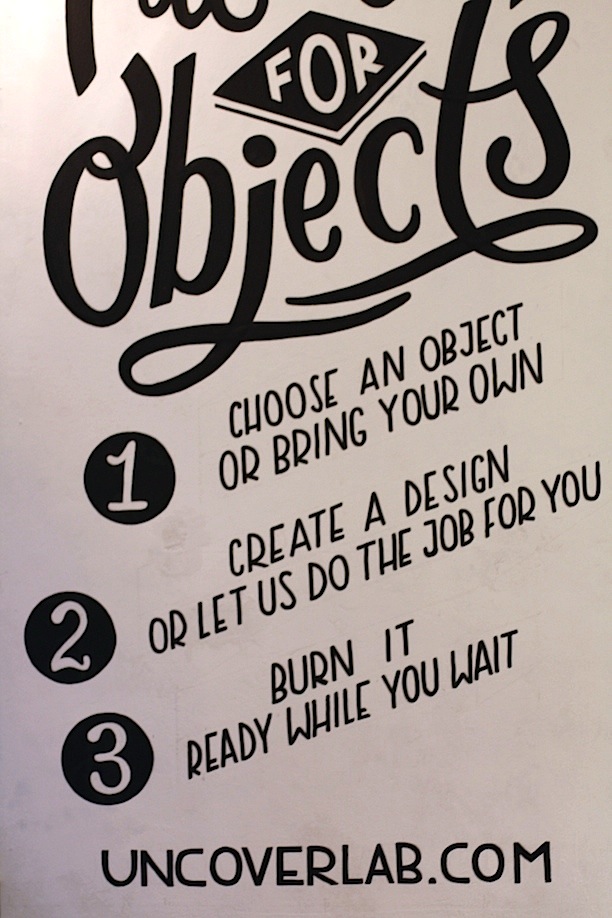 FOR
Objects
1
CHOOSE AN OBJECT
OR BRING YOUR OWN
2
CREATE A DESIGN
OR LET US DO THE JOB FOR YOU
3
BURN IT
READY WHILE YOU WAIT
UNCOVERLAB.COM